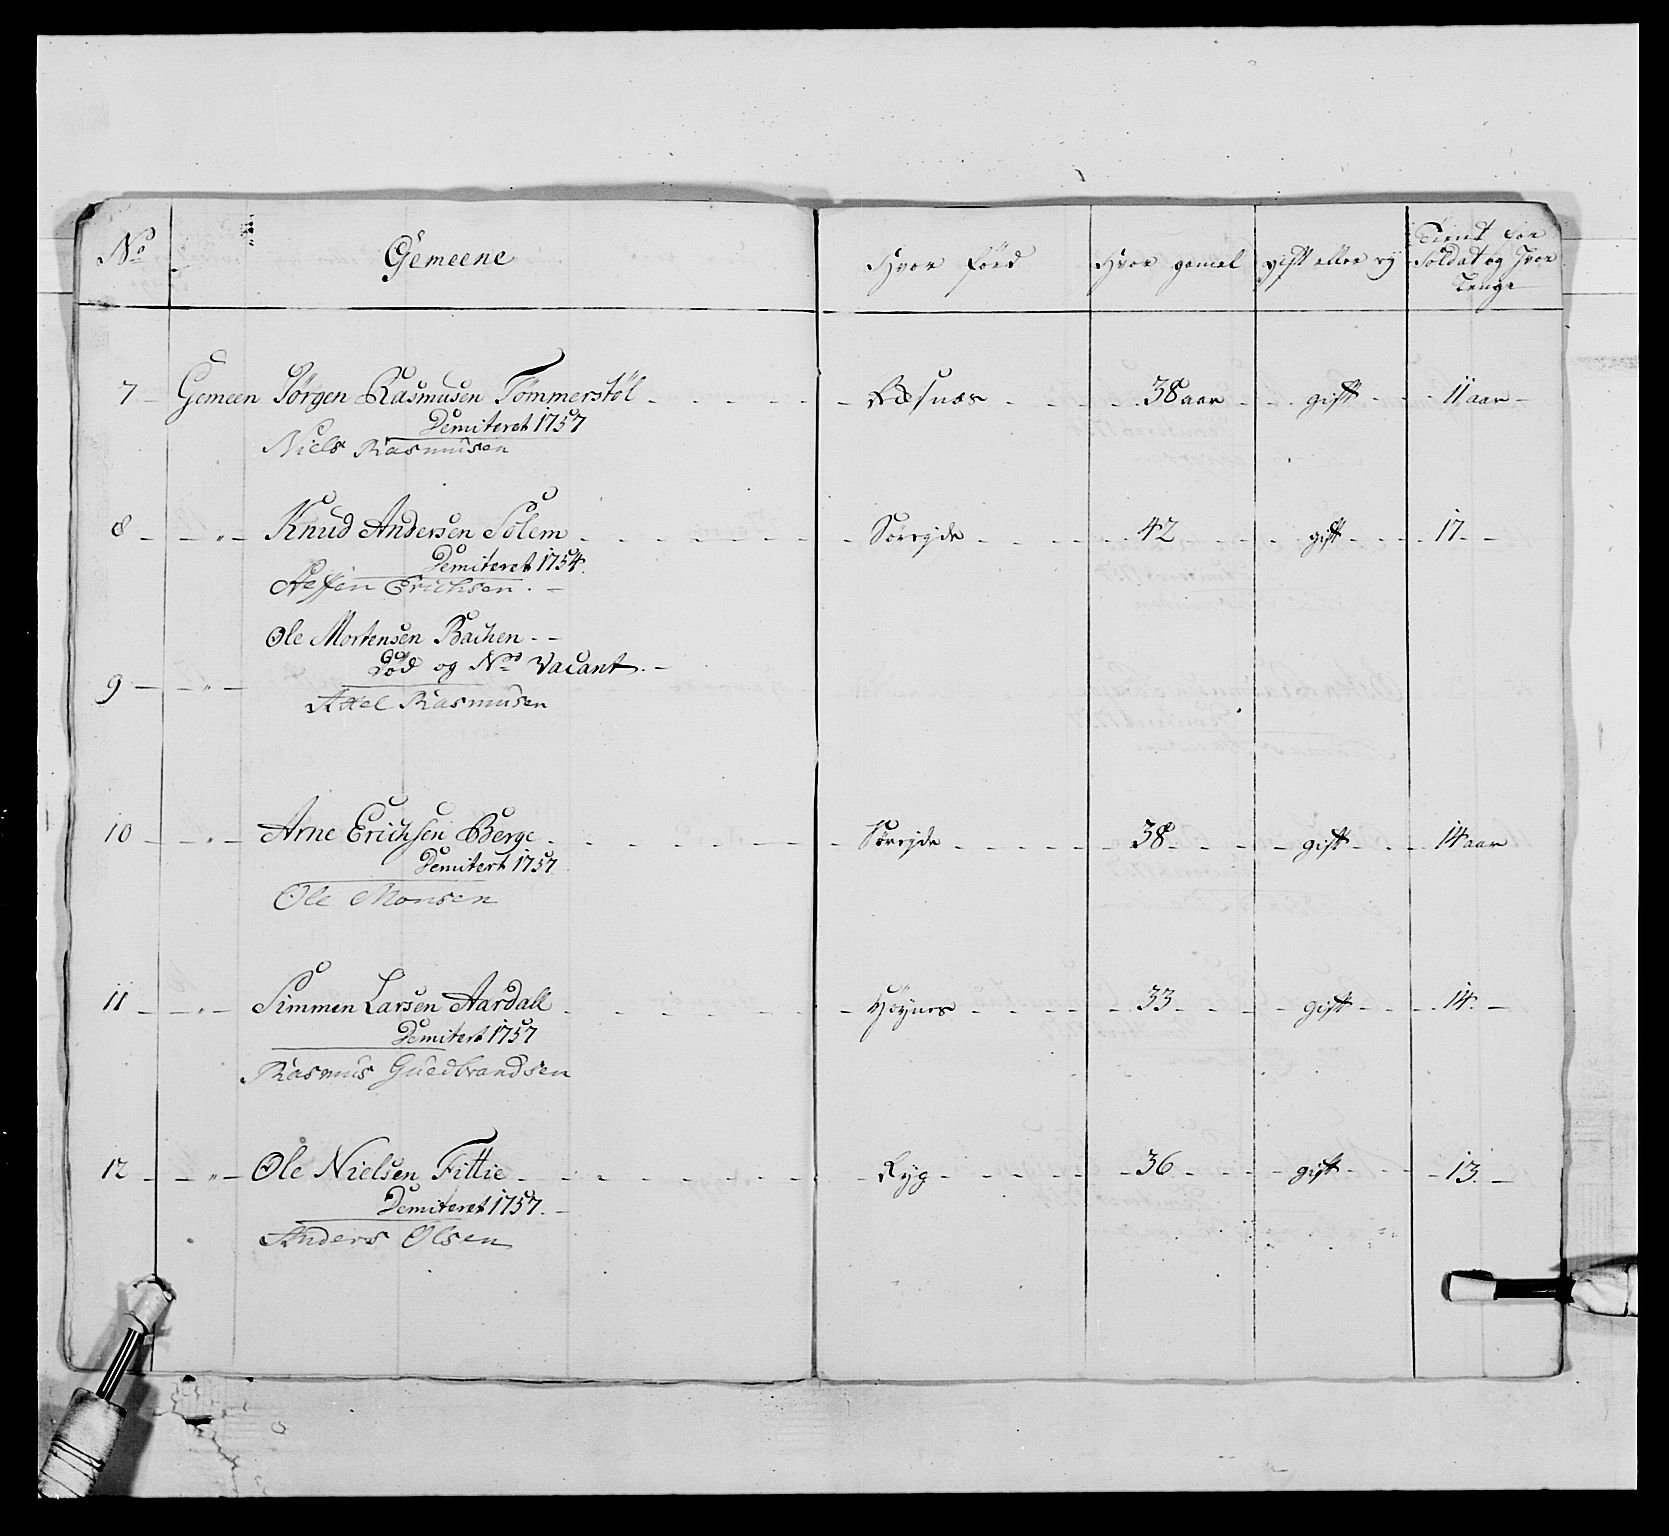 No
Gemeene
Hvor föed
Hvor gamel
gift eller ej
Tient for
Soldat og Hvor
Lenge
7 - Gemeen Jörgen Rasmusen Tømmerstöl - - - Næsnær - - - 38 aar - - gift - - 11 aar -
Demiteret 1757
Niels Rasmusen
8 - - " - Knud Andersen Solem - - - Sørejde - - - 42 - - - gift - - - 17 - -
Demiteret 1754.
Steffen Erichsen. -
Ole Mortensen Bachen. -
Død og No Vacant. -
9 - - " -
Axel Rasmusen
10 - - " - Arne Erichsen Berge - - - Sørejde - - - 38 - - - gift - - - 14 aar
Demitert 1757
Ole Monsen
11 - - " - Simmen Larsen Aardall - - - Höynes - - - 33 - - - gift - - - 14. -
Demitert 1757
Rasmus Guedbrandsen
12 - - " - Ole Nielsen Fittie - - - Ryg - - - 36 - - - gift - - - 13. -
Demiteret 1757. -
Anders Olsen